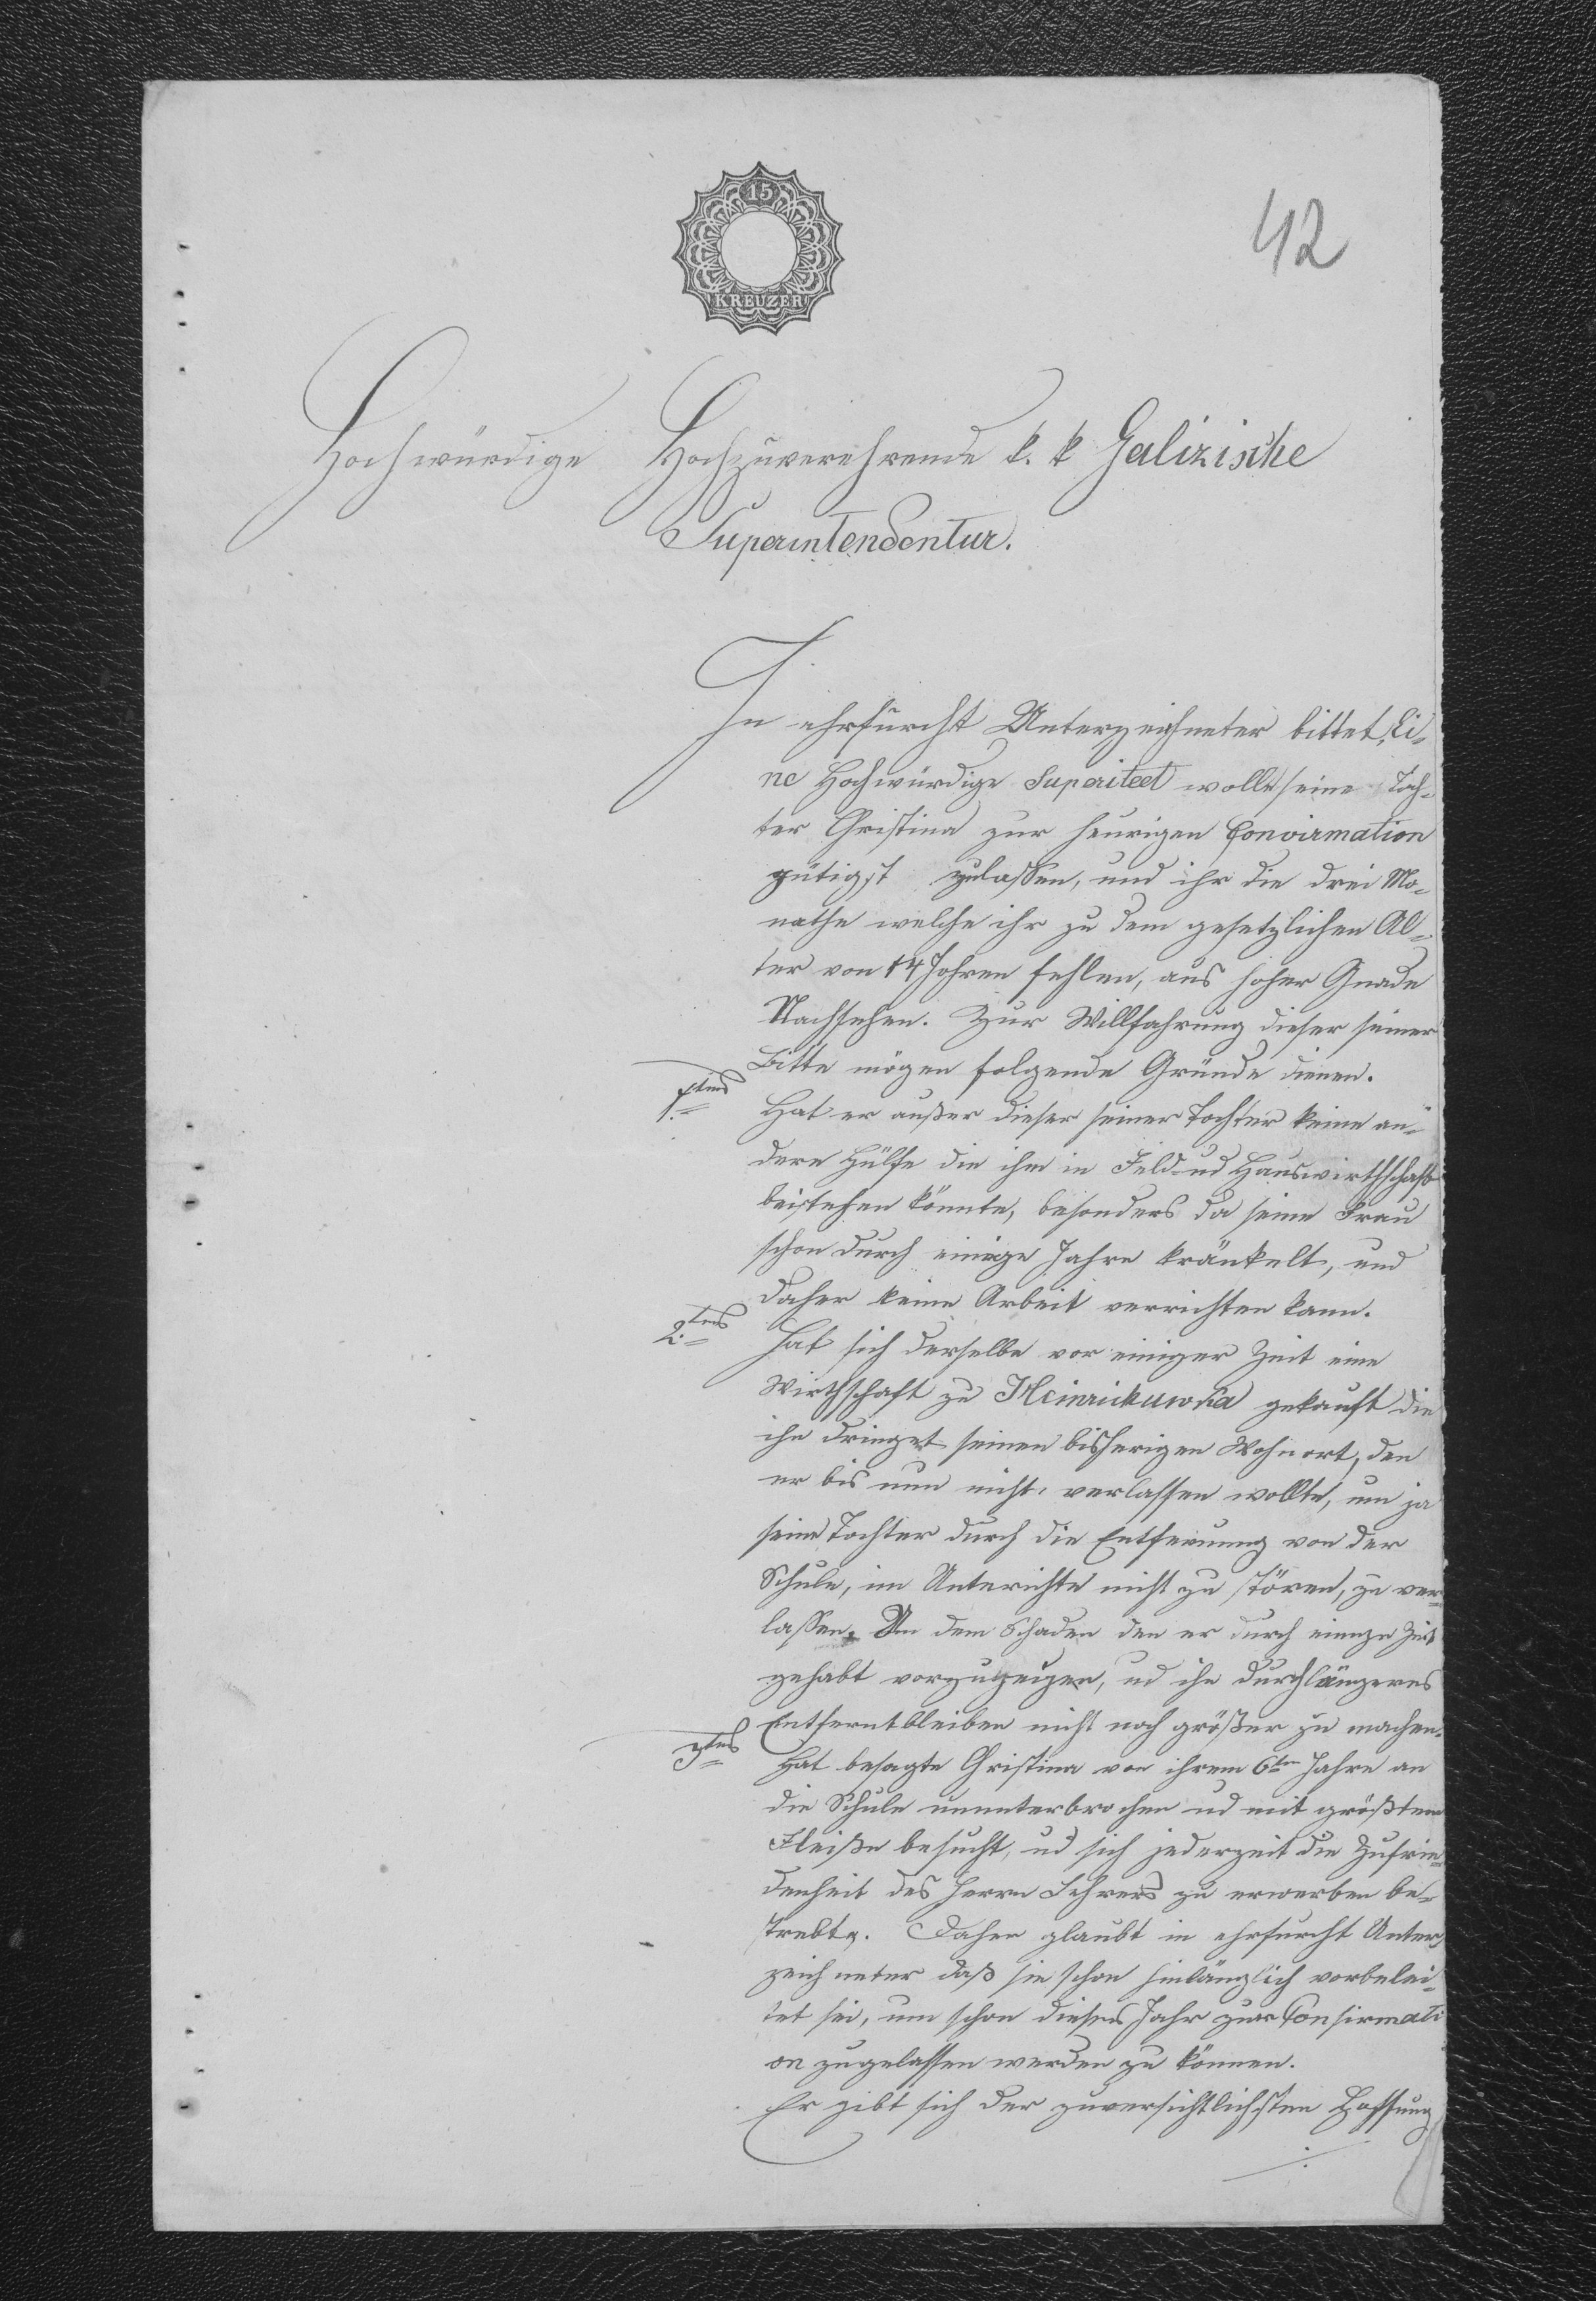 15
KREUZER
42
Hochwürdige Hochzuverehrende k. k Galizische
Superintendentur.
In ehrfurcht Unterzeichneter bittet, Ei-
ne Hochwürdige Superitedt wolle seine Toch-
ter Christina zur heurigen Convirmation
gütigst zulassen, und ihr die drei Mo-
nathe welche ihr zu dem gesetzlichen Al-
ter von 14 Johren fehlen, aus hoher Gnade
Nachsehen. Zur Willfahrung dieser seiner
Bitte mögen folgende Gründe dienen.
1.tens Hat er außer dieser seiner Tochter keine an-
dere Hülfe die ihm in Feld- ud Hauswirthschaft
beistehen könnte, besonders da seine Frau
schon durch einige Jahre kränkelt, und
daher keine Arbeit verrichten kann.
2.tens Hat sich derselbe vor einiger Zeit eine
Wirthschaft zu Heinrichuwka gekauft die
ihn dringet seinen bisherigen Wohnort, den
er bis nun nicht verlassen wollte, um ja
seine Tochter durch die Entfernung von der
Schule, im Unterichte nicht zu stören, zu ver-
lassen. Um dem Schaden den er durch einige Zeit
gehabt vorzubeugen, ud ihn durch längeres
Entferntbleiben nicht noch größer zu machen.
3tens Hat besagte Christina von ihrem 6ten Jahre an
die Schule ununterbrochen ud mit größtem
Fleiße besucht, ud sich jederzeit die Zufrie-
denheit des Herrn Lehrers zu erwerben be-
strebt. Daher glaubt in ehrfurcht Unter-
zeichneter daß sie schon hinlänglich vorbelei-
tet sei, um schon dieses Jahr zur Confirmati
on zugelassen werden zu können.
Er gibt sich der zuversichtlichsten Hoffnung